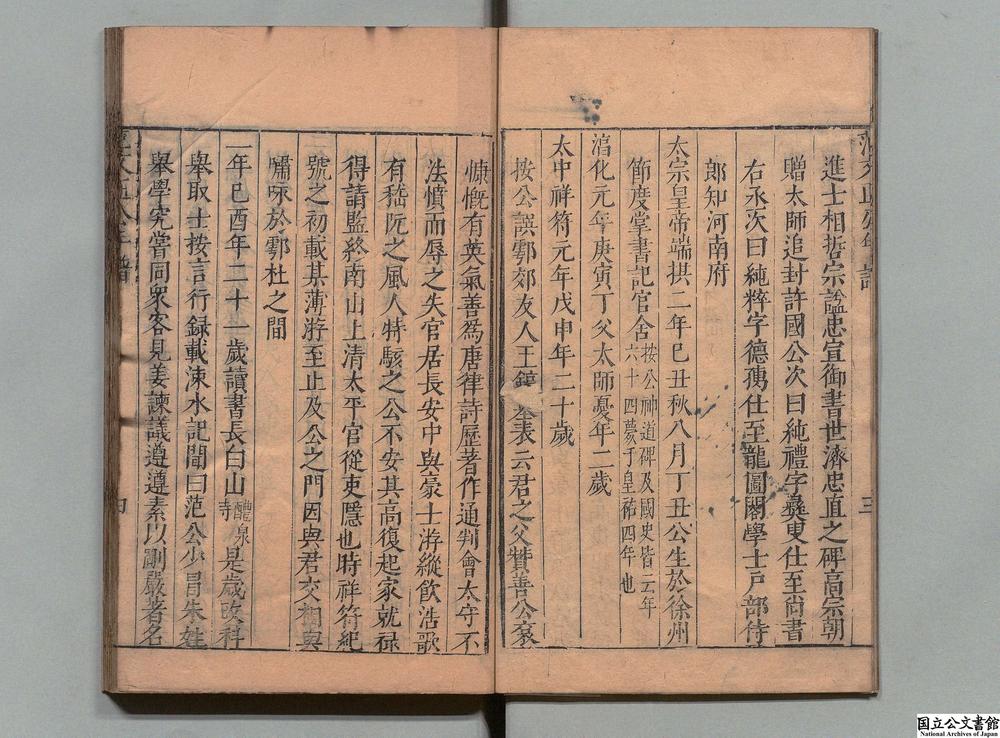 進士相哲宗謚忠宣御書世濟忠直之碑高宗朝
贈太師追封許國公次曰純禮字彝叟仕至尚書
右丞次曰純粹字德孺仕至龍圖閣學士戸部侍
郎知河南府
太宗皇帝端拱二年巳丑秋八月丁丑公生於徐州
節度掌書記官舍按公神道碑及國史皆云年六十四薨于皇祐四年也
淳化元年庚寅丁父太師憂年二歲
太中祥符元年戊申年二十歲
按公誤鄠郊友人王鎬表云君之父贊善公袞
三
慷慨有英氣善爲唐律詩歷著作通判會太守不
法憤而辱之失官居長安中與豪士游縱飲浩歌
有嵇阮之風人特駭之公不安其高復起家就祿
得請監終南山上清太平宫從吏隱也時祥符紀
號之初載某薄游至止及公之門因與君交相與
嘯咏於鄠杜之間
二年巳酉年二十一歲讀書長白山醴泉寺是歲改科
舉取士按言行録載涑水記聞曰范公少冒朱姓
舉學究嘗同衆客見姜諫議遵遵素以剛嚴著名
四
国立公文書館
National Archives of Japan